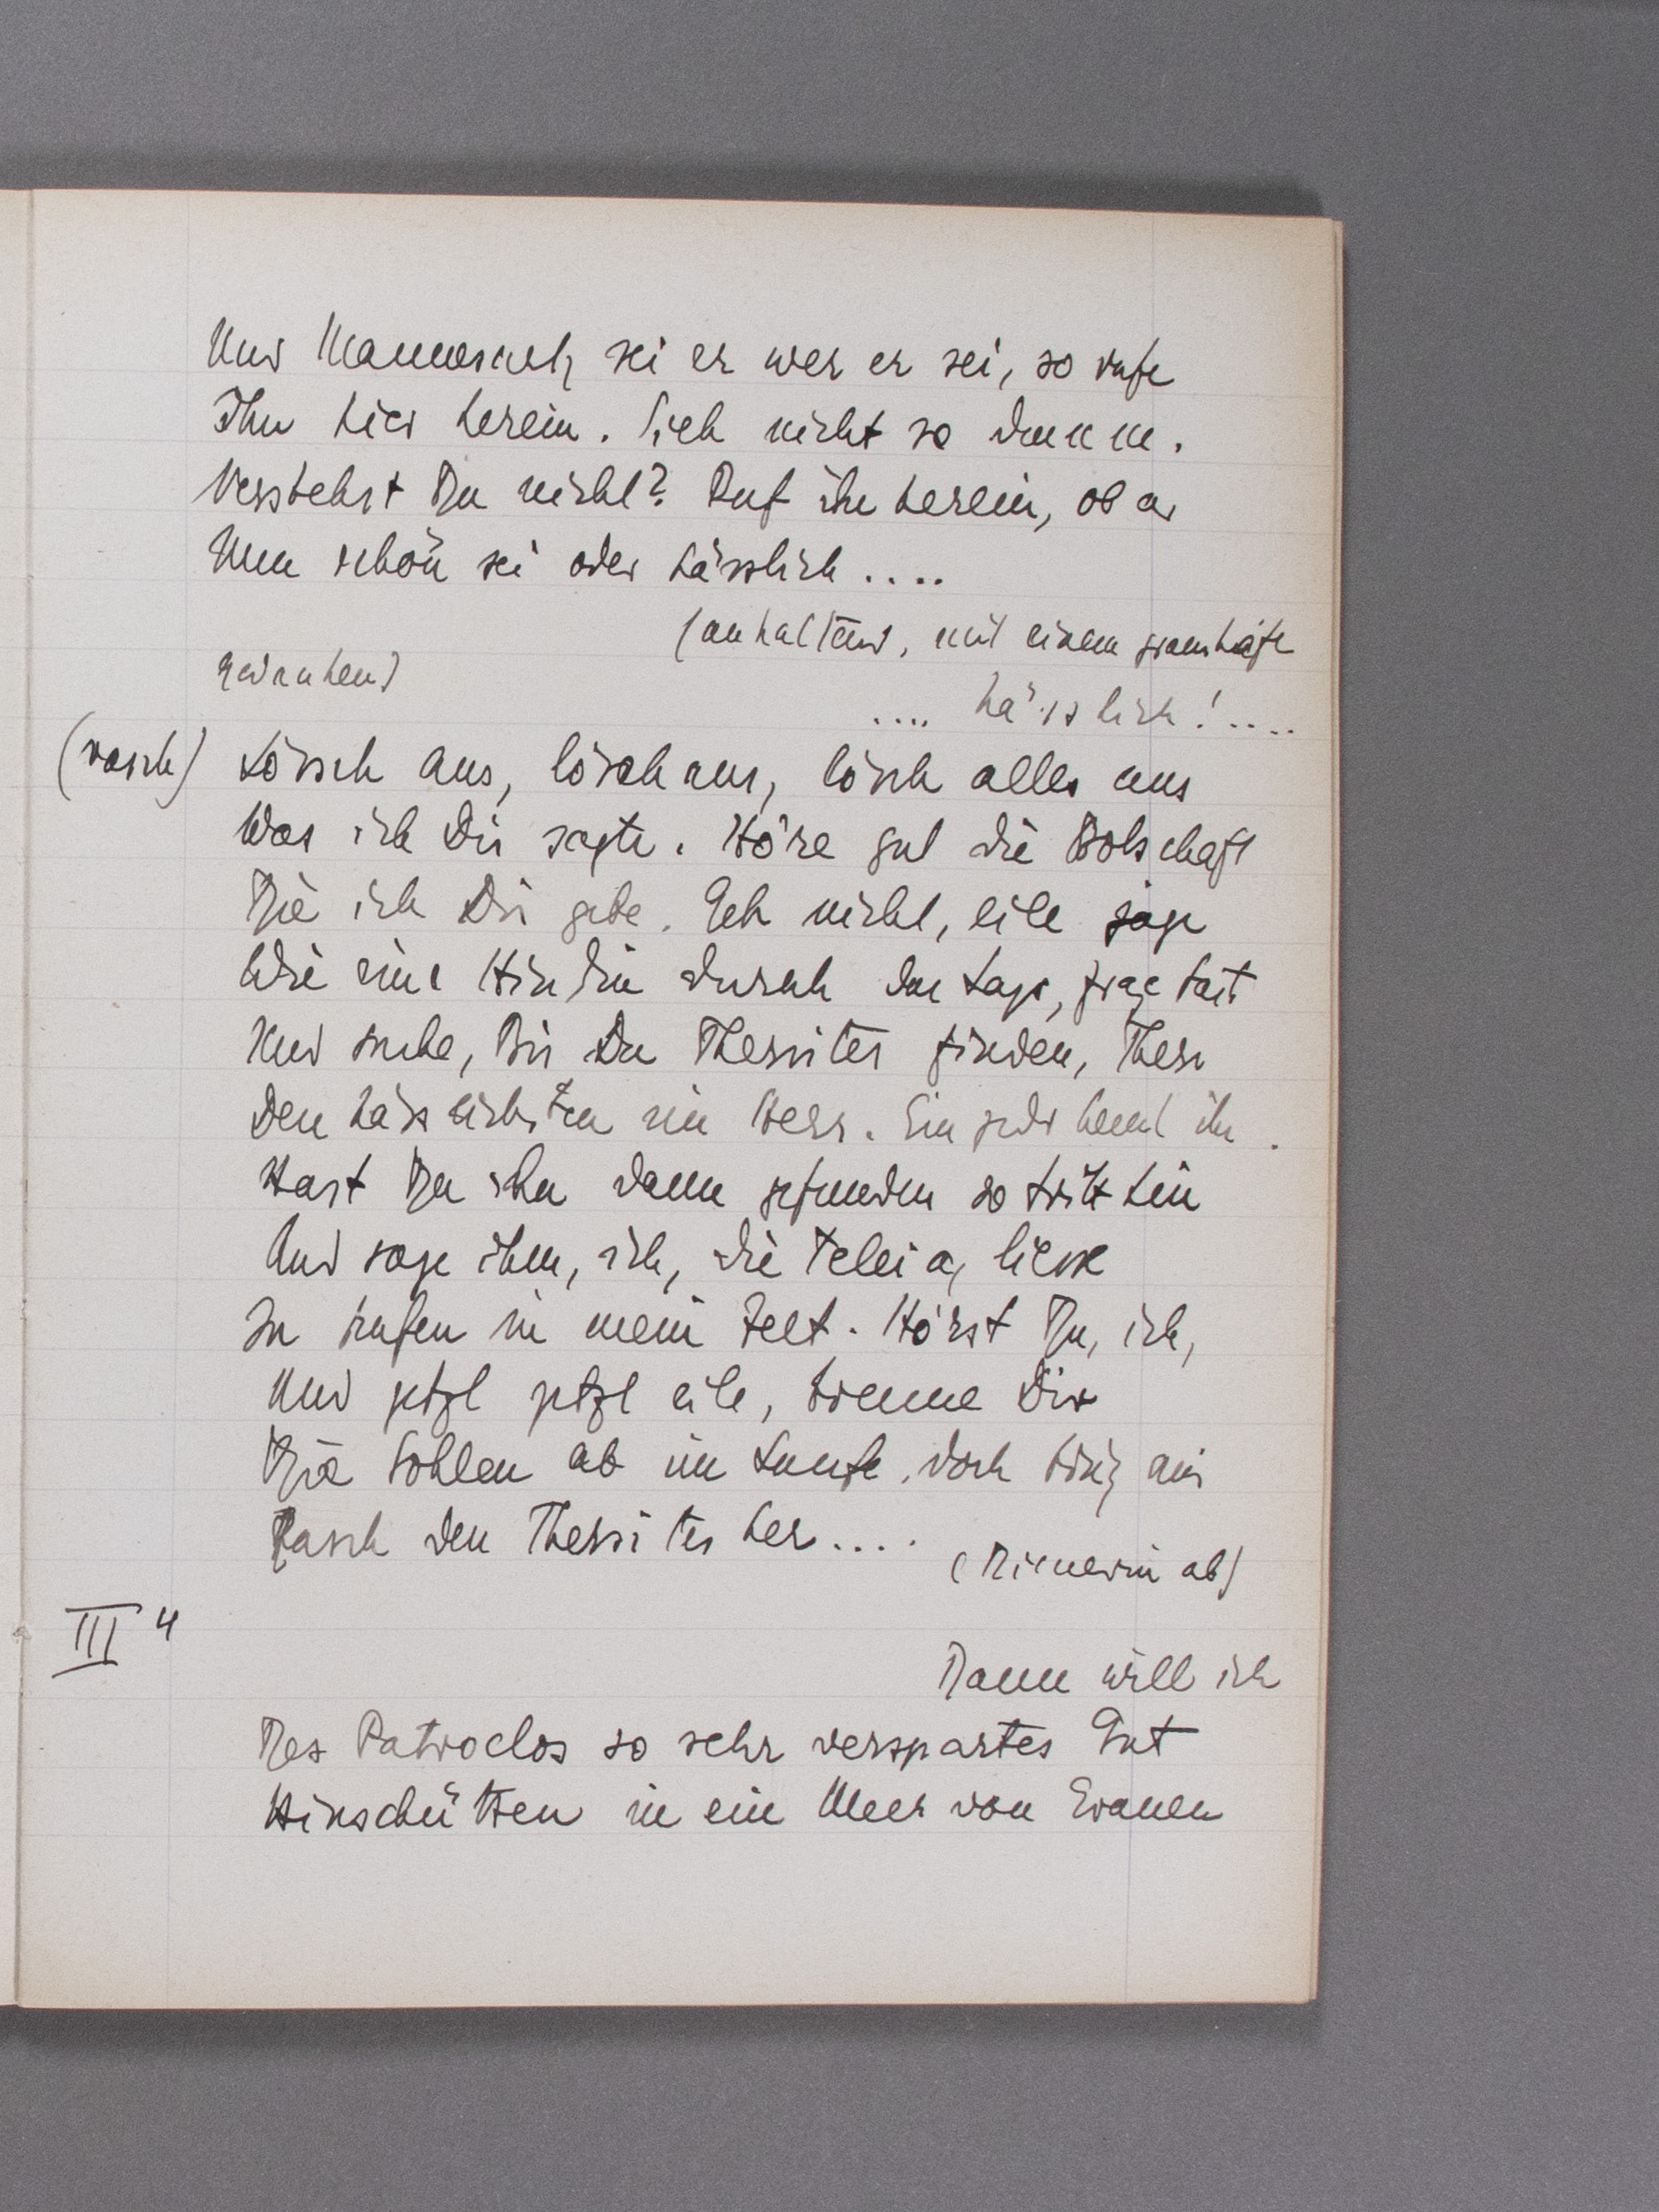 Und Mannosieh, sei er wer er sei, so rufe
Ihn hier herein. Sieh nicht so dumm.
Verstehst Du nicht? Ruf ihn herein, ob er
Nun schön sei oder hässlich ....
(anhaltend, mit einem
Gedanken)
.... hässlich! ....
(rasch) Lösch aus, lösch aus, lösch alles aus
Was ich Dir sagte. Höre gut die Botschaft
Die ich Dir gebe. Geh nicht, eile jage
Wie eine Hindin durch das Lager, frage hast
Und suche, bis Du Thersites finden, Thers
Den hässlichsten im Heer. Ein jeder kennt ihn.
Hast Du ihn dann gefunden so tritt hin
Und sage ihm, ich, die Teleia, liesse
Zu rufen in mein Zelt. Hörst Du, ich,
Und jetzt jetzt eile, brenne Dir
Die Sohlen ab im Laufe, doch bring mir
Rasch den Thersites her....
(Dienerin ab)
III 4
Dann will ich
Des Patroclos so sehr verspartes Gut
Hinschütten in ein Meer von